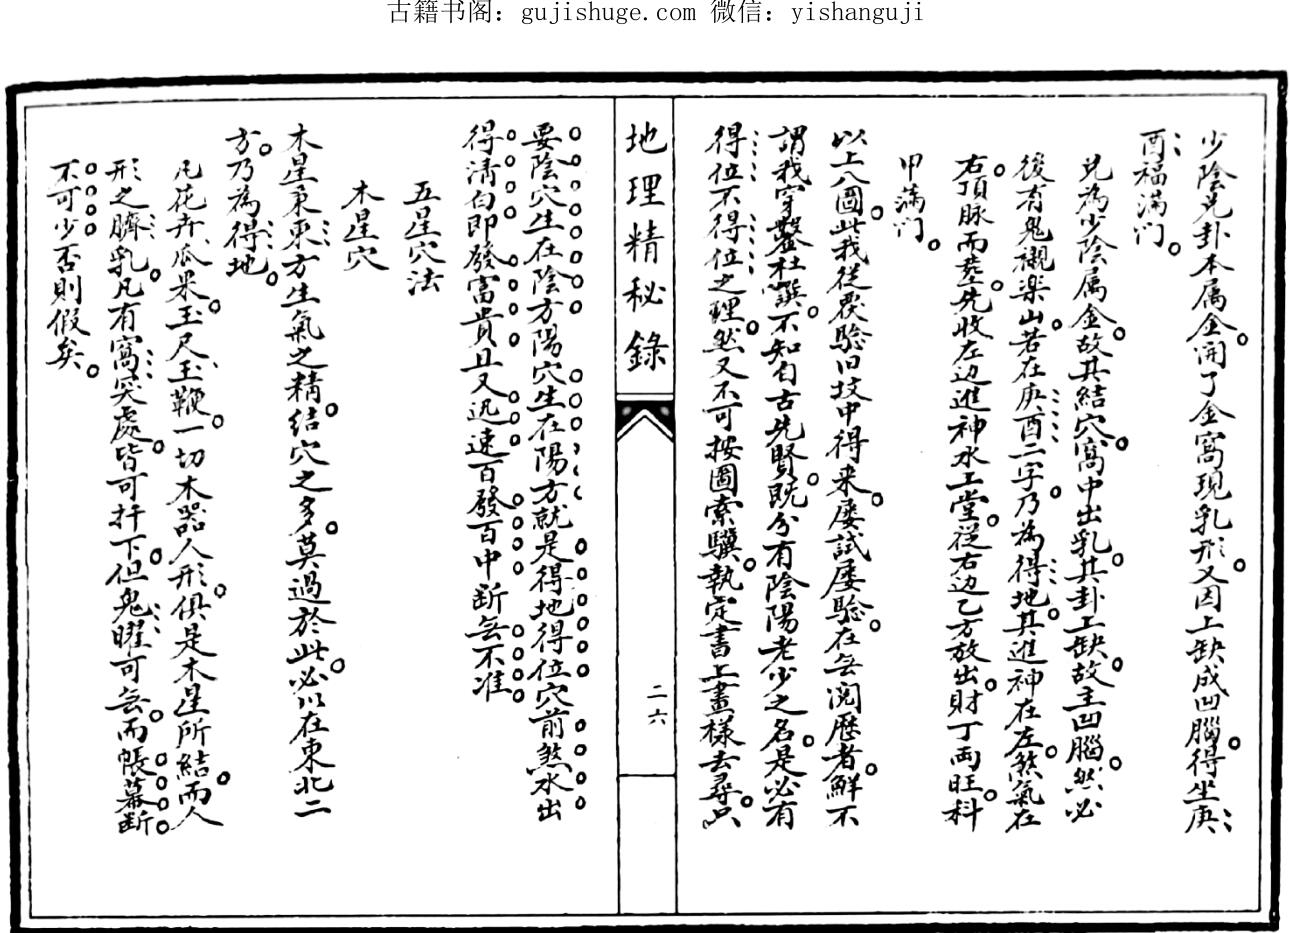 古籍书阁：gujishuge.com 微信：yishanguji
少陰兌卦本属金。開了金窩現乳形。又因上缺成凹腦。得坐庚
酉福滿門。
兌為少陰属金。故其結穴。窩中出乳。其卦上缺。故主凹腦。然必
後有鬼襯楽山。若在庚、酉二字。乃為得地。其進神在左。煞氣在
右。頂脉而塟。先收左边進神水上堂。從右边乙方放出。財丁両旺。科
甲滿门。
以上八圖。此我從覆驗旧坟中得來。屡試屡驗。在無閲歷者。鮮不
謂我穿鑿杜譔。不知自古先賢。既分有陰陽老少之名。是必有
得位不得位之理。然又不可按圖索驥。執定書上畫樣去尋。只
地理精秘錄
二六
要陰穴生在陰方陽穴生在陽方就是得地得位穴前煞水出
得清白即發富貴且又迅速百發百中断無不准
五星穴法
木星穴
木星秉東方生氣之精。結穴之多。莫過於此。必以在東北二
方。乃為得地。
凡花卉、瓜果。玉尺、玉鞭。一切木器人形。俱是木星所結。而人
形之臍乳。凡有窩突處。皆可扦下。但鬼曜可無。而帳幕断。
不可少。否則假矣。